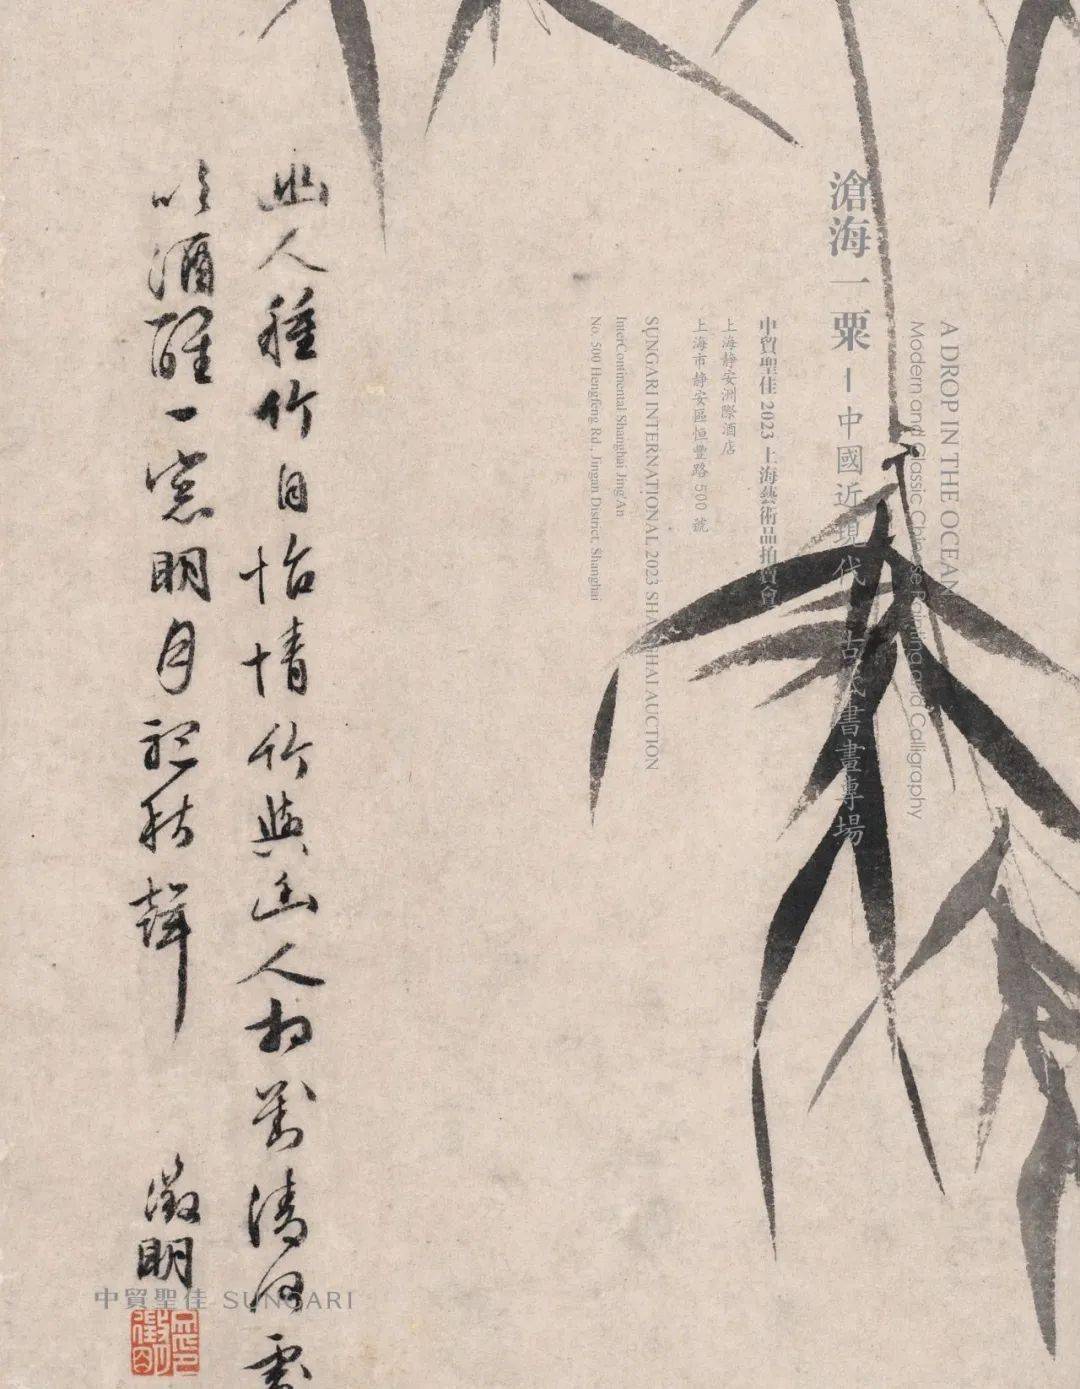 A DROP IN THE OCEAN
Modern and Classic Chinese Painting and Calligraphy
滄海一粟－中國近現代、古代書畫專場
中貿聖佳 2023 上海藝術品拍賣會
上海静安洲際酒店
上海市静安區恒豐路 500 號
SUNGARI INTERNATIONAL 2023 SHANGHAI AUCTION
InterContinental Shanghai Jing'An
No. 500 Hengfeng Rd., Jingan District, Shanghai
幽人種竹自怡情竹與幽人相對清何處
吟酒醒一窓明月聽秋聲
徵明
中貿聖佳 SUNGARI